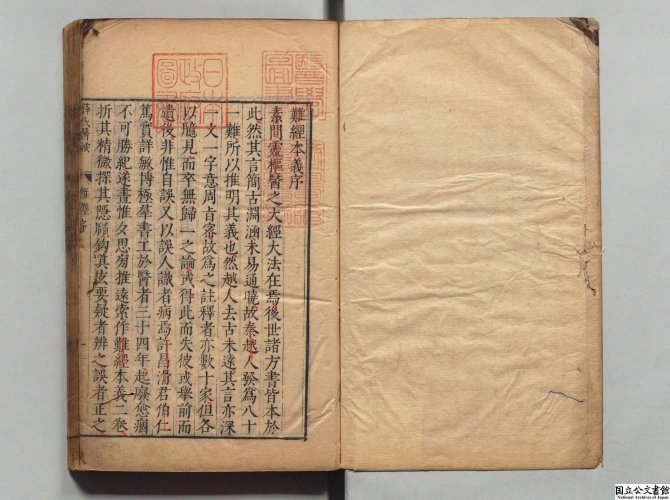 難經本義序
素問靈樞醫之大經大法在焉後世諸方書皆本於
此然其言簡古淵涵未易通曉故秦越人發爲八十
一難所以推明其義也然越人去古未遠其言亦深
一文一字意周旨密故爲之註釋者亦數十家但各
以臆見而卒無歸一之論或得此而失彼或舉前而
遺後非惟自誤又以誤人識者病焉許昌滑君伯仁
篤實詳敏博極羣書工於醫者三十四年起廢愈痼
不可勝紀遂晝惟夕思旁推遠索作難經本義二卷
析其精微探其隱賾鈎其玄要疑者辨之誤者正之
薛氏醫按
難經序
一
日本
政府
圖書
国立公文書館
National Archives of Japan